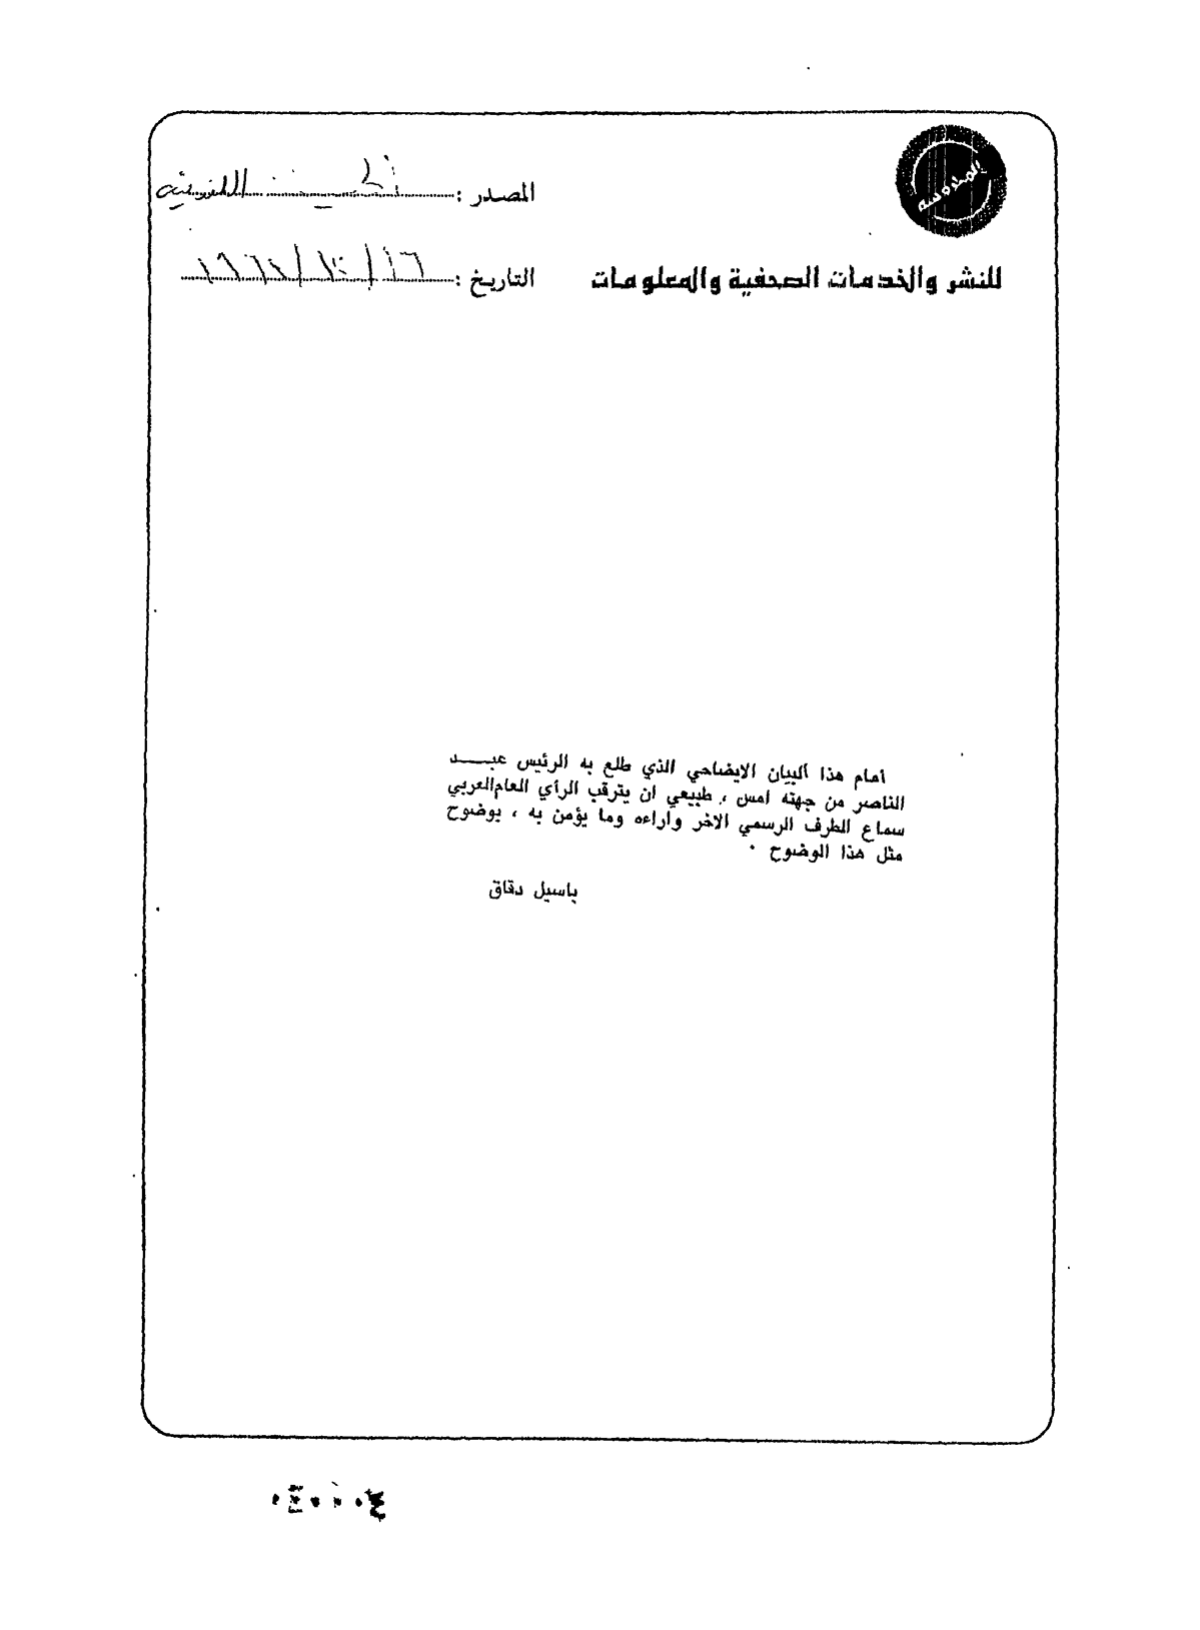 المصدر :
للنشر والخدمات الصحفية والمعلومات
التاريخ : ١٦/١٠/١٩٦١
أمام هذا البيان الايضاحي الذي طلع به الرئيس عبـــد
الناصر من جهته امس ، طبيعي ان يترقب الرأي العام العربي
سماع الطرف الرسمي الاخر واراءه وما يؤمن به ، بوضوح
مثل هذا الوضوح ٠
باسيل دقاق